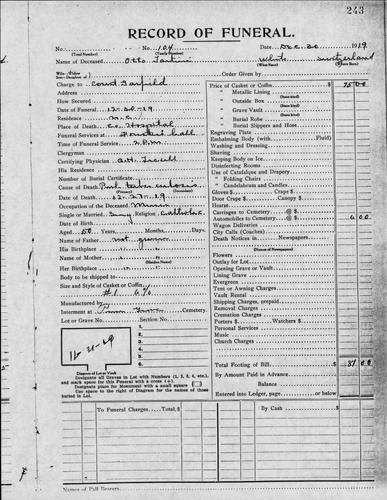 243
RECORD OF FUNERAL.
No. No. 104 Date Dec. 30 1919
(Total Number) (Yearly Number)
Name of Deceased Otto White Switzerland
(What Race) (Where Born)
Order Given by
Charge to Court Garfield
Address
How Secured
Date of Funeral 12-30-19
Residence
Place of Death Co. Hospital
Funeral Services at hall
Time of Funeral Service 2 P.M.
Clergyman
Certifying Physician
His Residence
Number of Burial Certificate
Cause of Death Pul. tuberculosis
(Primary) (Secondary)
Date of Death 12-27-19
Occupation of the Deceased Miner
Single or Married Religion Catholic
Date of Birth
Aged 50 Years, Months, Days
Name of Father not given
His Birthplace
Name of Mother
(Maiden Name)
Her Birthplace
Body to be shipped to
Size and Style of Casket or Coffin
#1 6/0
Manufactured by
Interment at Cemetery.
Lot or Grave No. Section No.
1
2
3
4
5
6
Diagram of Lot or Vault
Designate all Graves in Lot with Numbers (1, 2, 3, 4, etc.), and mark space for this Funeral with a cross (+).
Designate place for Monument with a small square
Use space to right of Diagram for the names of those buried in Lot.
Price of Casket or Coffin 75 00
(State kind)
" Metallic Lining
(State kind)
" Outside Box
(State kind)
" Grave Vault
(State kind)
" Burial Robe
(State kind)
" Burial Slippers and Hose
Engraving Plate
Embalming Body (with Fluid)
Washing and Dressing
Shaving
Keeping Body on Ice
Disinfecting Rooms
Use of Catafalque and Drapery
" Folding Chairs
" Candelabrum and Candles
Gloves $ Crape $
Door Crape $ Canopy $
Hearse
Carriages to Cemetery @ $
Automobiles to Cemetery @ $ 6 00
Wagon Deliveries
City Calls (Coaches)
Death Notices in Newspapers
Flowers
Outlay for Lot
Opening Grave or Vault
Lining Grave
Evergreen
Tent or Awning Charges
Vault Rental
Shipping Charges, prepaid
Removal Charges
Cremation Charges
Porters $ Watchers $
Personal Services
Music
Church Charges
Total Footing of Bill $ 81 00
By Amount Paid in Advance
Balance
Entered into Ledger, page or below
To Funeral Charges, Total, $ By Cash $
Names of Pall Bearers